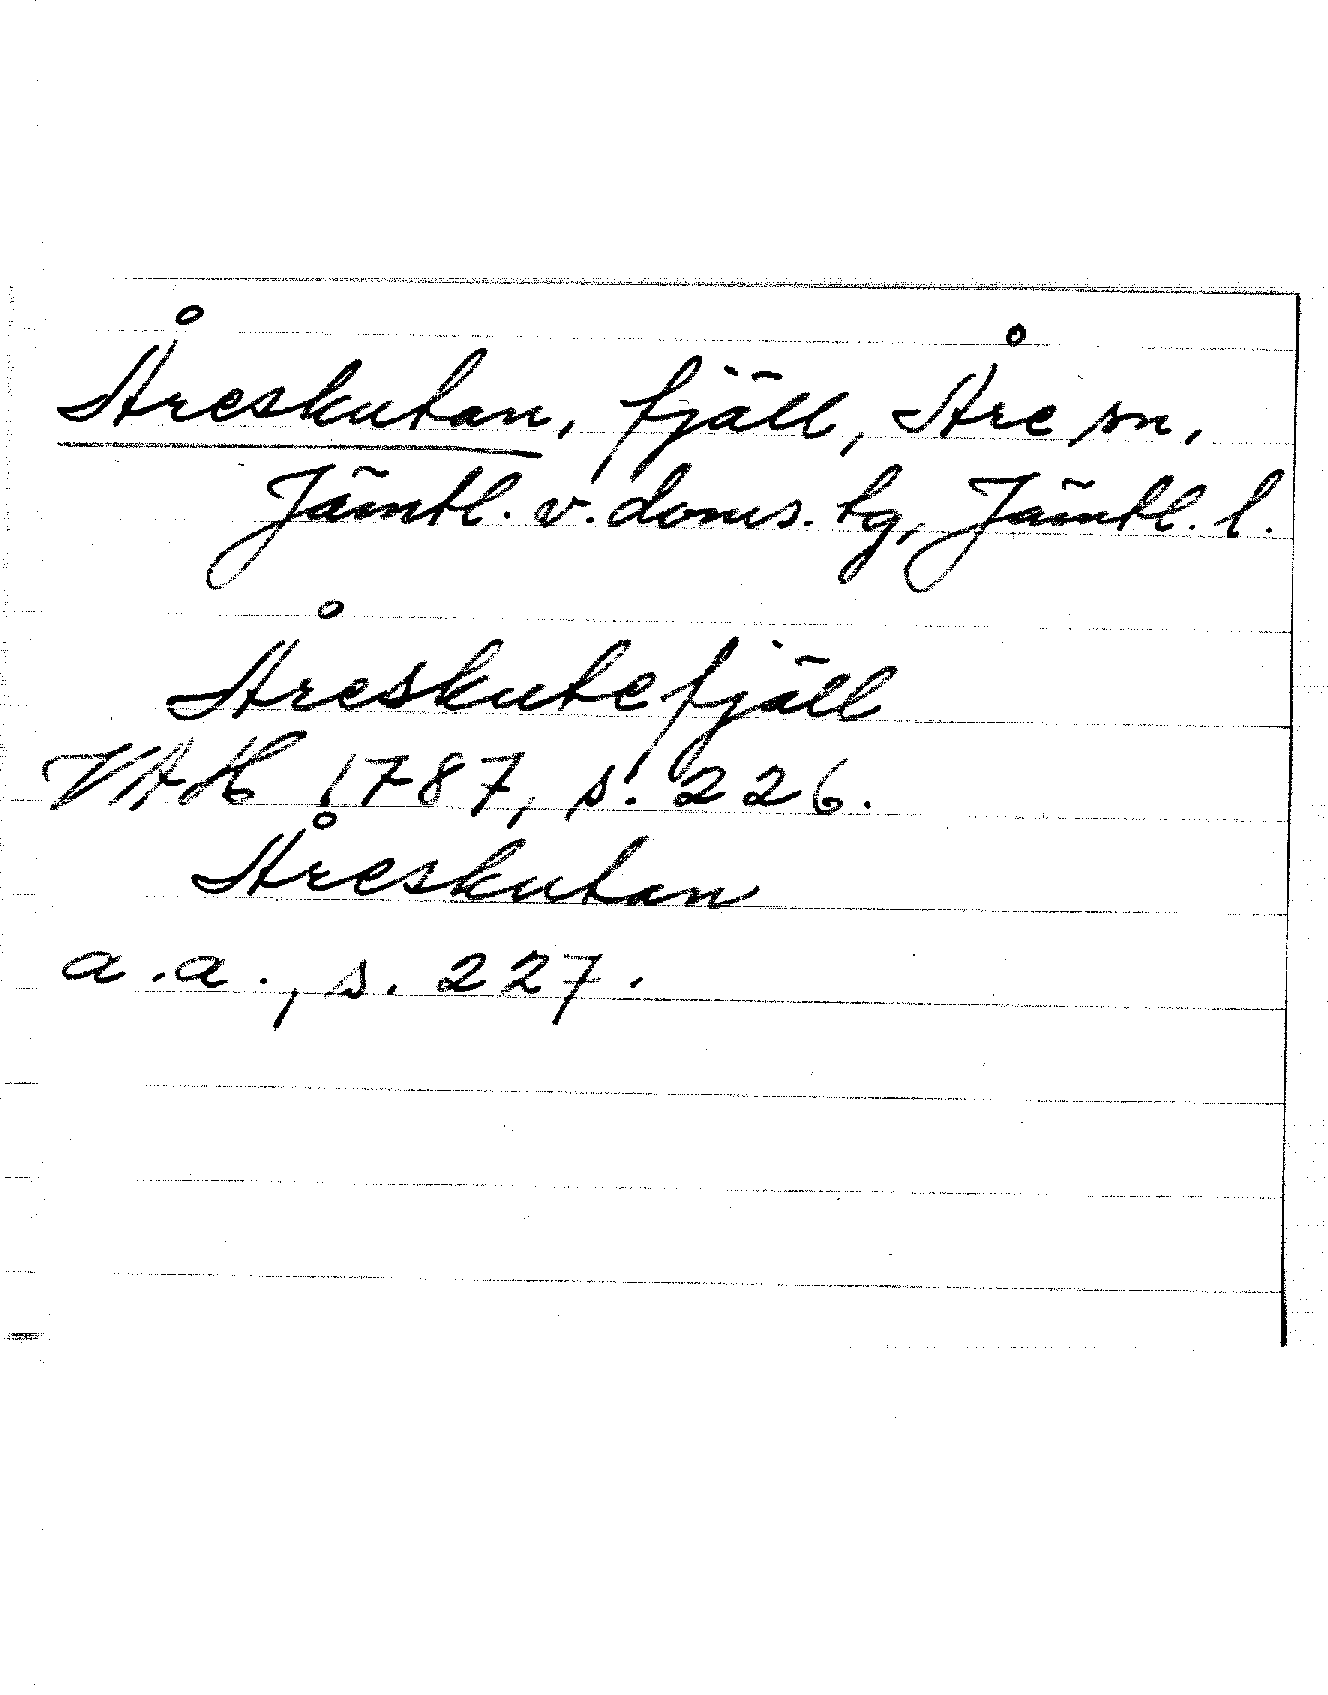 Åreskutan, fjäll, Åre sn,
Jämtl. v. doms. tg, Jämtl. l.
Åreskutefjäll
VAH 1787, s. 226.
Åreskutan
a.a., s. 227.